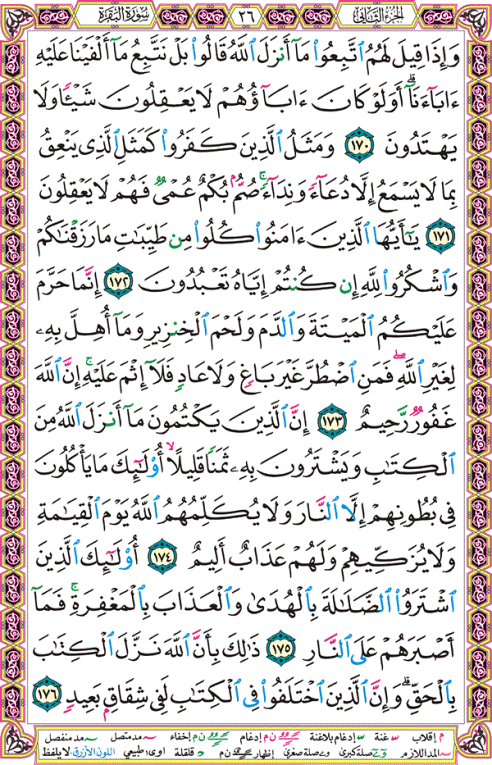 الجزء الثاني ٢٦ سورة البقرة
وَإِذَا قِيلَ لَهُمُ ٱتَّبِعُوا۟ مَآ أَنزَلَ ٱللَّهُ قَالُوا۟ بَلْ نَتَّبِعُ مَآ أَلْفَيْنَا عَلَيْهِ
ءَابَآءَنَآ ۗ أَوَلَوْ كَانَ ءَابَآؤُهُمْ لَا يَعْقِلُونَ شَيْـًٔا وَلَا
يَهْتَدُونَ ١٧٠ وَمَثَلُ ٱلَّذِينَ كَفَرُوا۟ كَمَثَلِ ٱلَّذِى يَنْعِقُ
بِمَا لَا يَسْمَعُ إِلَّا دُعَآءً وَنِدَآءً ۚ صُمٌّۢ بُكْمٌ عُمْىٌ فَهُمْ لَا يَعْقِلُونَ
١٧١ يَـٰٓأَيُّهَا ٱلَّذِينَ ءَامَنُوا۟ كُلُوا۟ مِن طَيِّبَـٰتِ مَا رَزَقْنَـٰكُمْ
وَٱشْكُرُوا۟ لِلَّهِ إِن كُنتُمْ إِيَّاهُ تَعْبُدُونَ ١٧٢ إِنَّمَا حَرَّمَ
عَلَيْكُمُ ٱلْمَيْتَةَ وَٱلدَّمَ وَلَحْمَ ٱلْخِنزِيرِ وَمَآ أُهِلَّ بِهِۦ
لِغَيْرِ ٱللَّهِ ۖ فَمَنِ ٱضْطُرَّ غَيْرَ بَاغٍ وَلَا عَادٍ فَلَآ إِثْمَ عَلَيْهِ ۚ إِنَّ ٱللَّهَ
غَفُورٌ رَّحِيمٌ ١٧٣ إِنَّ ٱلَّذِينَ يَكْتُمُونَ مَآ أَنزَلَ ٱللَّهُ مِنَ
ٱلْكِتَـٰبِ وَيَشْتَرُونَ بِهِۦ ثَمَنًا قَلِيلًا ۙ أُو۟لَـٰٓئِكَ مَا يَأْكُلُونَ
فِى بُطُونِهِمْ إِلَّا ٱلنَّارَ وَلَا يُكَلِّمُهُمُ ٱللَّهُ يَوْمَ ٱلْقِيَـٰمَةِ
وَلَا يُزَكِّيهِمْ وَلَهُمْ عَذَابٌ أَلِيمٌ ١٧٤ أُو۟لَـٰٓئِكَ ٱلَّذِينَ
ٱشْتَرَوُا۟ ٱلضَّلَـٰلَةَ بِٱلْهُدَىٰ وَٱلْعَذَابَ بِٱلْمَغْفِرَةِ ۚ فَمَآ
أَصْبَرَهُمْ عَلَى ٱلنَّارِ ١٧٥ ذَٰلِكَ بِأَنَّ ٱللَّهَ نَزَّلَ ٱلْكِتَـٰبَ
بِٱلْحَقِّ ۗ وَإِنَّ ٱلَّذِينَ ٱخْتَلَفُوا۟ فِى ٱلْكِتَـٰبِ لَفِى شِقَاقٍۭ بَعِيدٍ ١٧٦
م إقلاب س غنة س إدغام بلاغنة ن م إدغام ن م إخفاء مد متصل مد منفصل
المد اللازم صلة كبرى صلة صغرى إظهار ن م قلقلة اوى؛ طبيعي اللون الأزرق؛ لا يلفظ